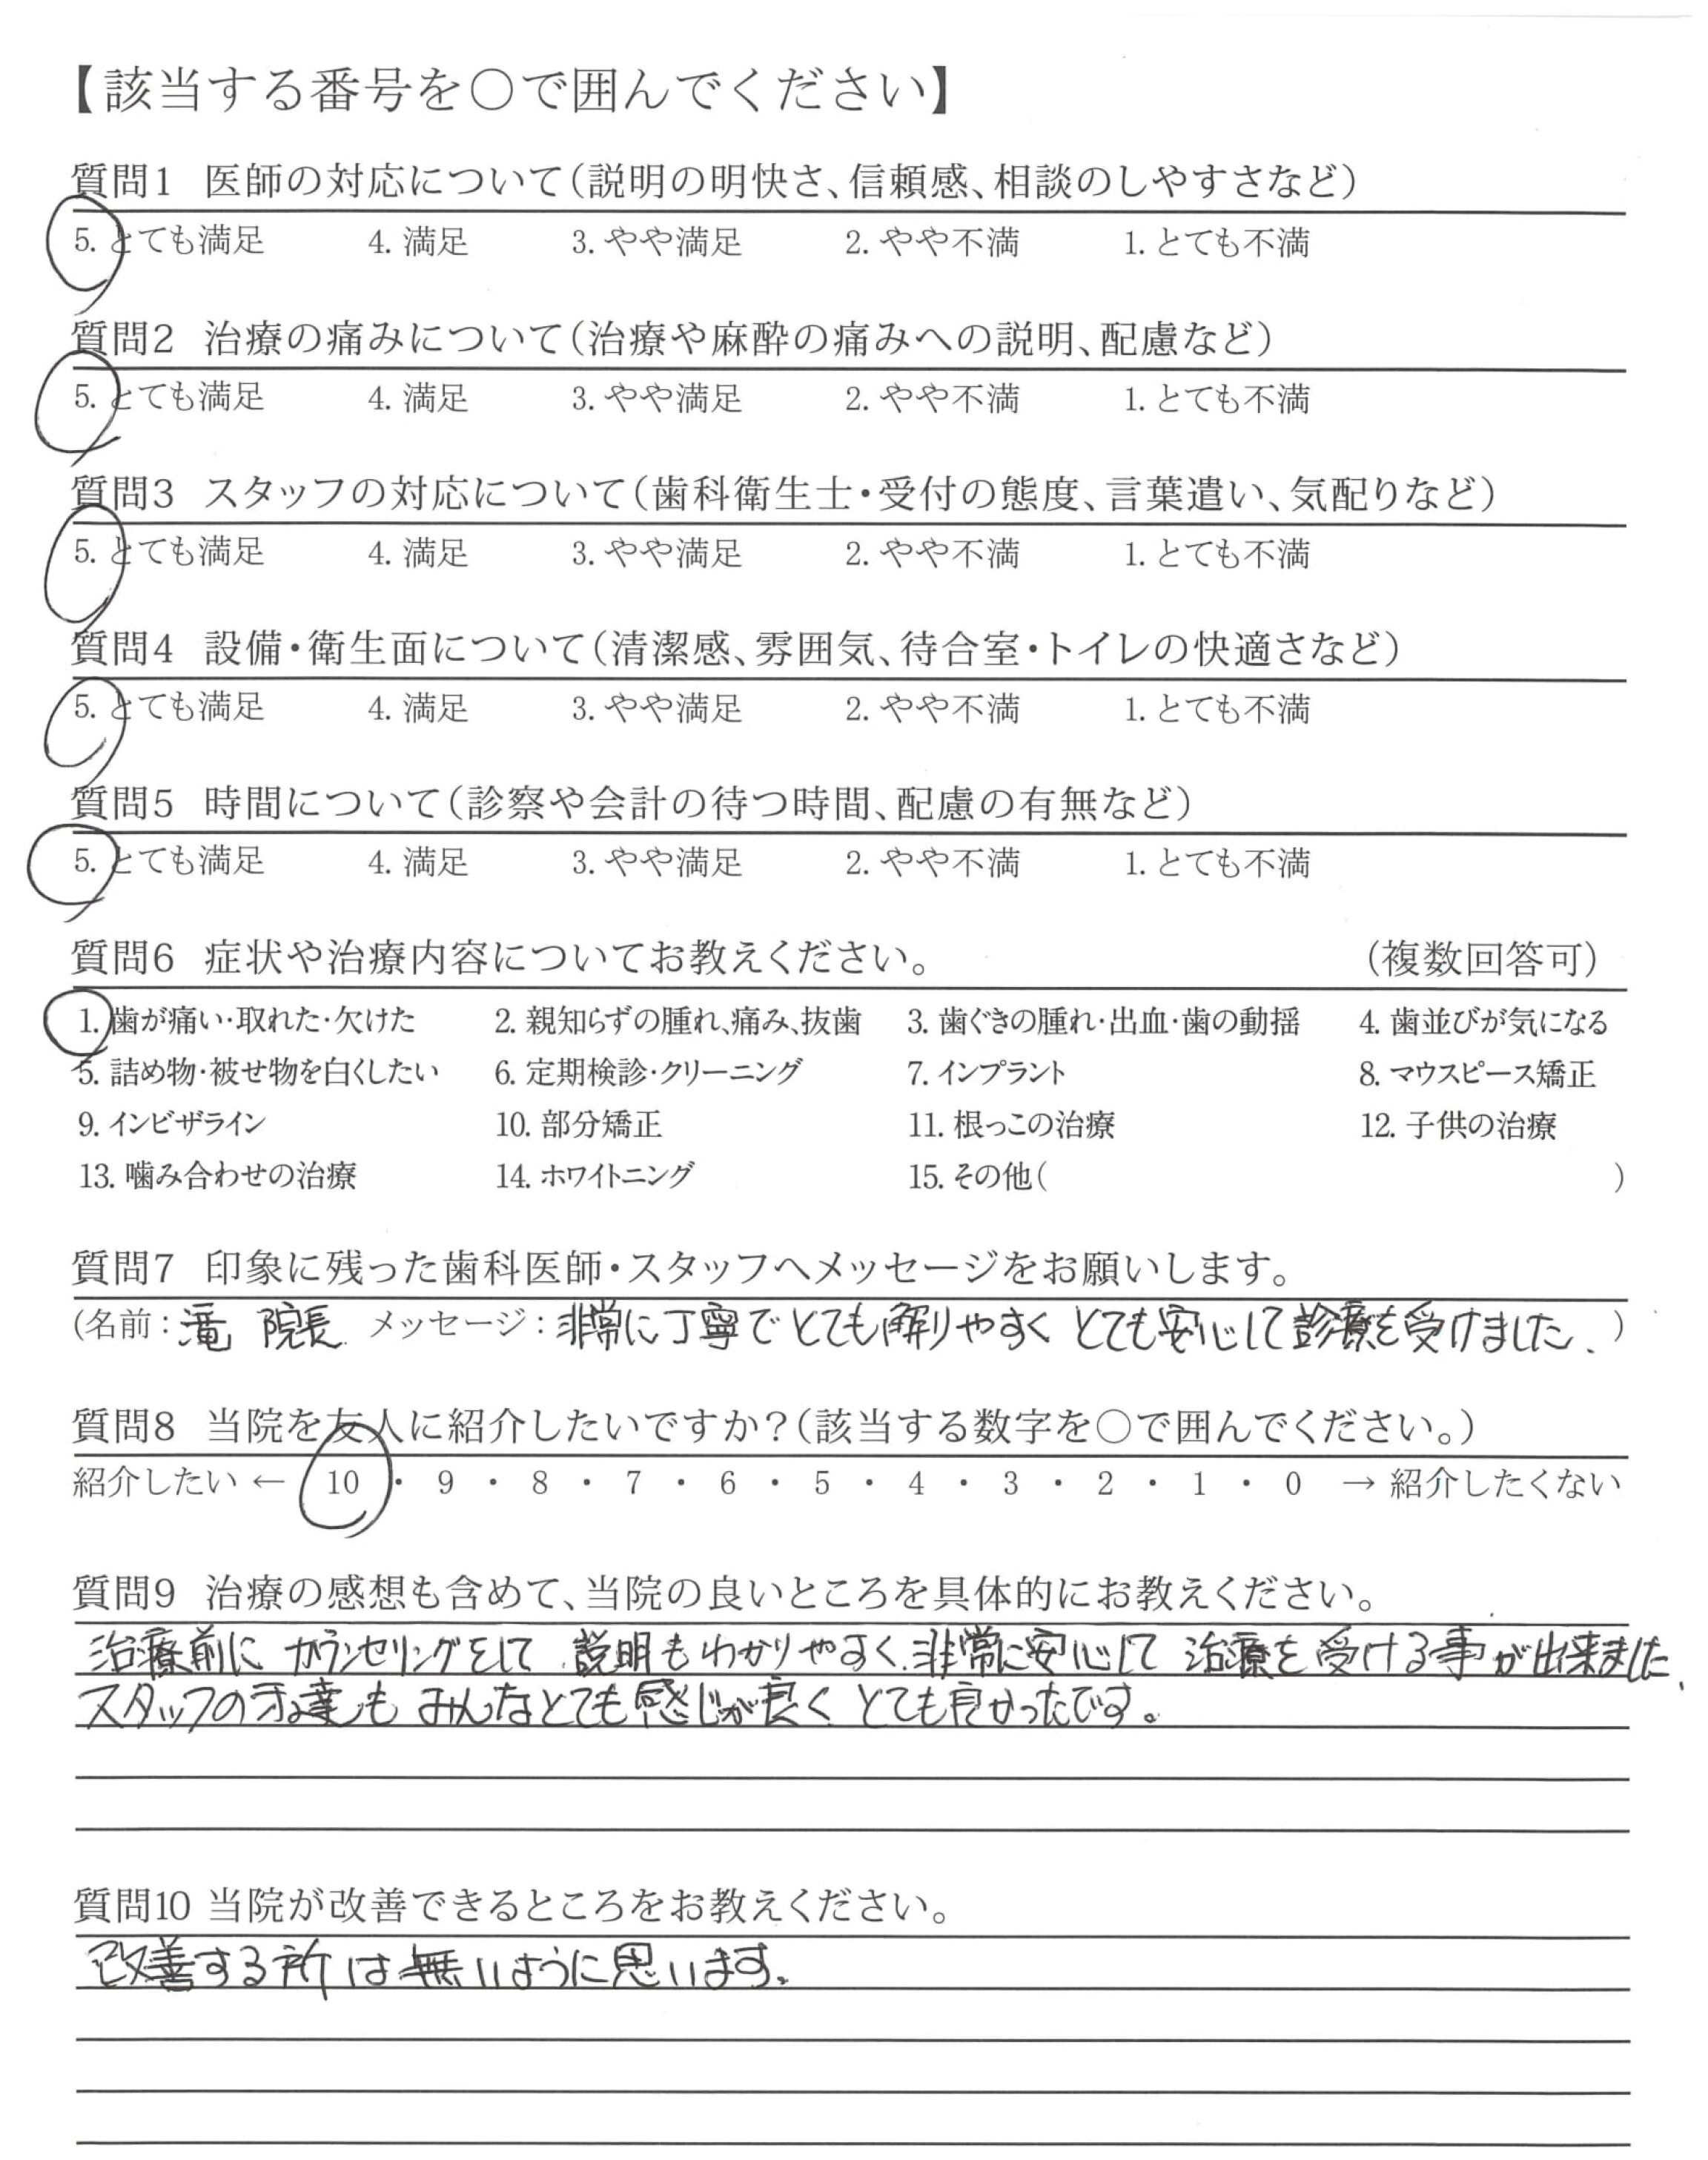 【該当する番号を○で囲んでください】
質問1 医師の対応について(説明の明快さ、信頼感、相談のしやすさなど)
5. とても満足 4. 満足 3. やや満足 2. やや不満 1. とても不満
質問2 治療の痛みについて(治療や麻酔の痛みへの説明、配慮など)
5. とても満足 4. 満足 3. やや満足 2. やや不満 1. とても不満
質問3 スタッフの対応について(歯科衛生士・受付の態度、言葉遣い、気配りなど)
5. とても満足 4. 満足 3. やや満足 2. やや不満 1. とても不満
質問4 設備・衛生面について(清潔感、雰囲気、待合室・トイレの快適さなど)
5. とても満足 4. 満足 3. やや満足 2. やや不満 1. とても不満
質問5 時間について(診察や会計の待つ時間、配慮の有無など)
5. とても満足 4. 満足 3. やや満足 2. やや不満 1. とても不満
質問6 症状や治療内容についてお教えください。 (複数回答可)
1. 歯が痛い・取れた・欠けた 2. 親知らずの腫れ、痛み、抜歯 3. 歯ぐきの腫れ・出血・歯の動揺 4. 歯並びが気になる
5. 詰め物・被せ物を白くしたい 6. 定期検診・クリーニング 7. インプラント 8. マウスピース矯正
9. インビザライン 10. 部分矯正 11. 根っこの治療 12. 子供の治療
13. 噛み合わせの治療 14. ホワイトニング 15. その他( )
質問7 印象に残った歯科医師・スタッフへメッセージをお願いします。
(名前:滝 院長 メッセージ:非常に丁寧でとても解りやすく とても安心して診療を受けました.)
質問8 当院を友人に紹介したいですか?(該当する数字を○で囲んでください。)
紹介したい ← 10 ・ 9 ・ 8 ・ 7 ・ 6 ・ 5 ・ 4 ・ 3 ・ 2 ・ 1 ・ 0 → 紹介したくない
質問9 治療の感想も含めて、当院の良いところを具体的にお教えください。
治療前に カウンセリングをして 説明もわかりやすく、非常に安心して 治療を受ける事が出来ました、
スタッフの方達も みんなとても感じが良く とても良かったです。
質問10 当院が改善できるところをお教えください。
改善する所は無いように思います。